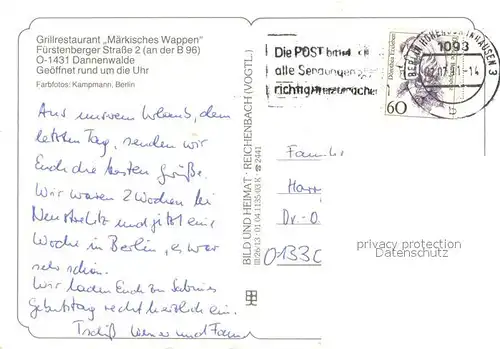 Grillrestaurant „Märkisches Wappen"
Fürstenberger Straße 2 (an der B 96)
O-1431 Dannenwalde
Geöffnet rund um die Uhr
Farbfotos: Kampmann, Berlin
Aus unserem Urlaub, dem
letzten Tag, senden wir
Euch die besten Grüße.
Wir waren 2 Wochen bei
Neustrelitz und jetzt eine
Woche in Berlin, es war
sehr schön.
Wir laden Euch zu Sabines
Geburtstag recht herzlich ein.
Tschüß Werner und
BILD UND HEIMAT · REICHENBACH (VOGTL.)
III/26/13 · 01 04 1135/03 K 2441
Die POST
alle Sendungen
richtig
BERLIN HOHENSCHÖNHAUSEN 3
1093
02.07.91-14
60
Famil
Harr
Dr.-O
O133
privacy protection
Datenschutz